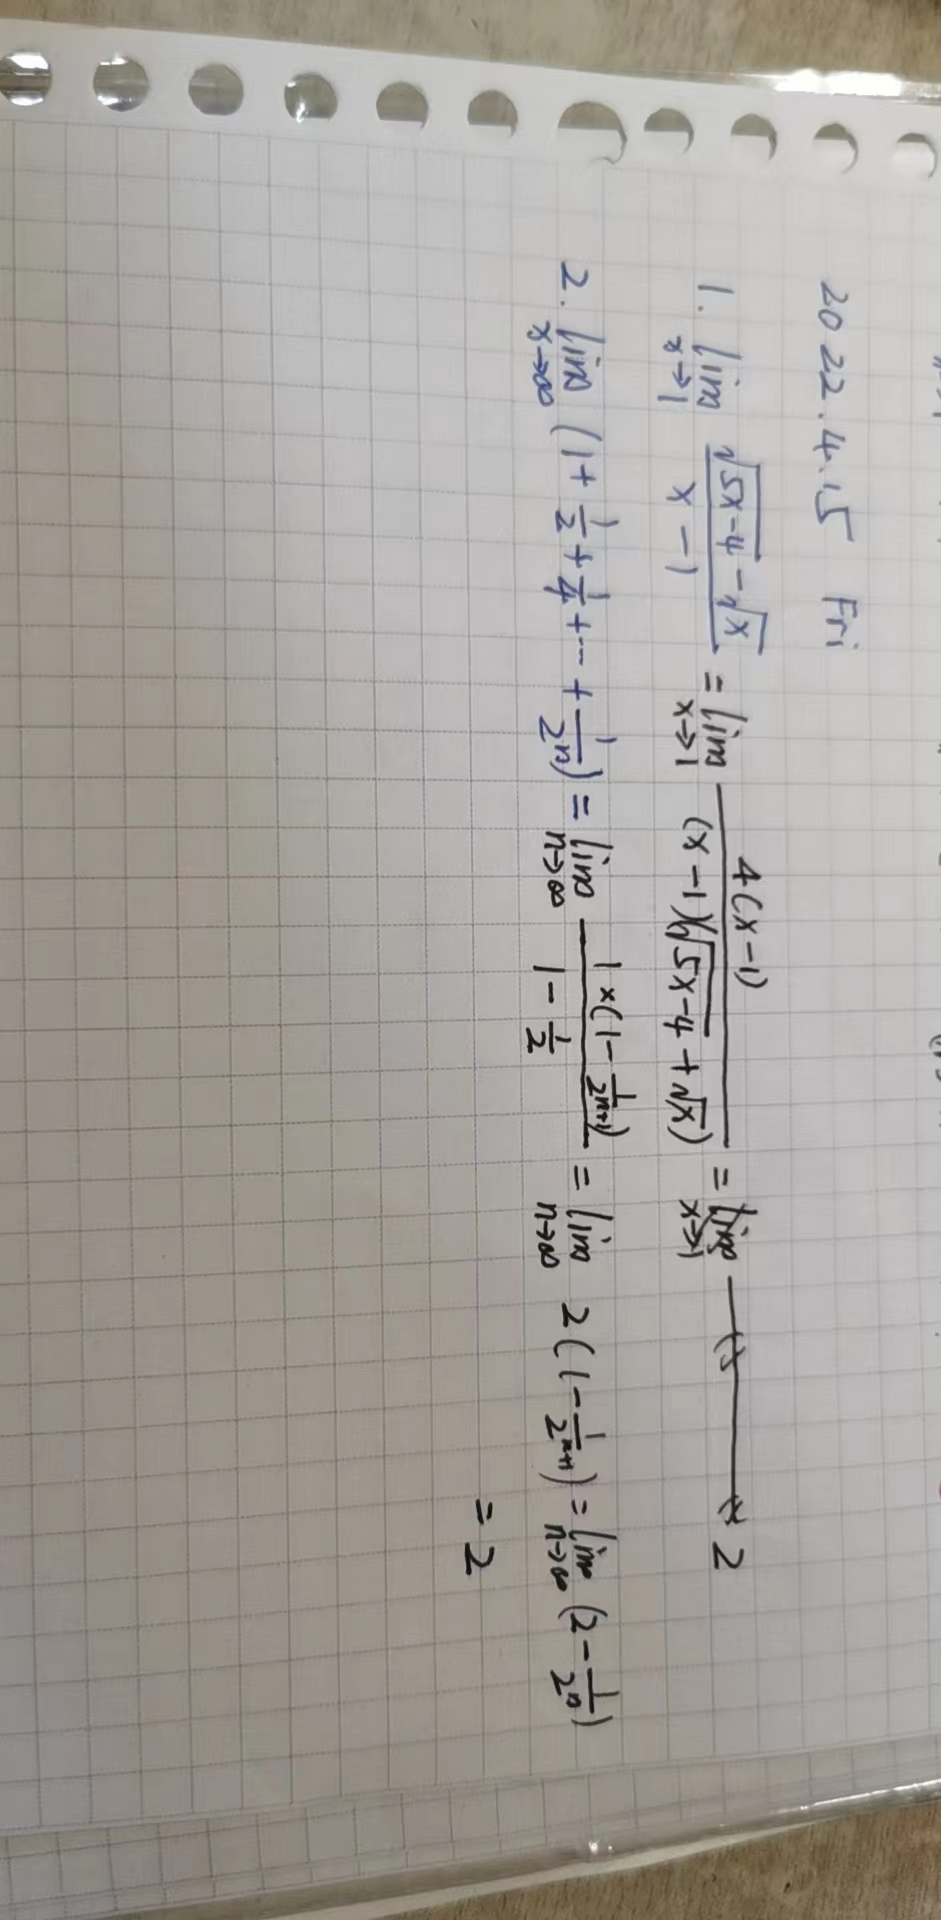 2022.4.15 Fri
1. lim x→1 (√(5x-4) - √x)/(x-1) = lim x→1 4(x-1)/((x-1)(√(5x-4)+√x)) = lim x→1 2
2. lim x→∞ (1+1/2+1/4+…+1/2ⁿ) = lim n→∞ 1×(1-1/2ⁿ⁺¹)/(1-1/2) = lim n→∞ 2(1-1/2ⁿ⁺¹) = lim n→∞ (2-1/2ⁿ)
= 2